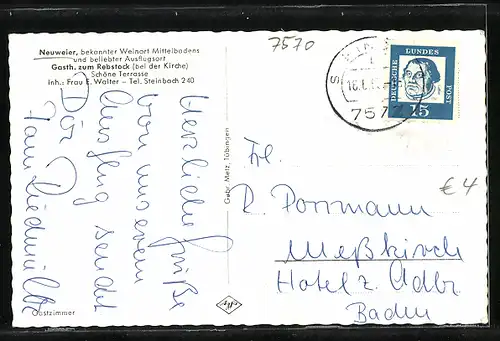 Neuweier, bekannter Weinort Mittelbadens
und beliebter Ausflugsort
Gasth. zum Rebstock (bei der Kirche)
Schöne Terrasse
Inh.: Frau E. Walter — Tel. Steinbach 240
7570
16.1.
757
DEUTSCHE
BUNDES
POST
15
Herzliche Grüße
von unserem
Ausflug sendet
Gebr. Metz, Tübingen
Frl.
R. Porrmann
Meßkirch
Hotel z. Adler
Baden
€4
Gastzimmer